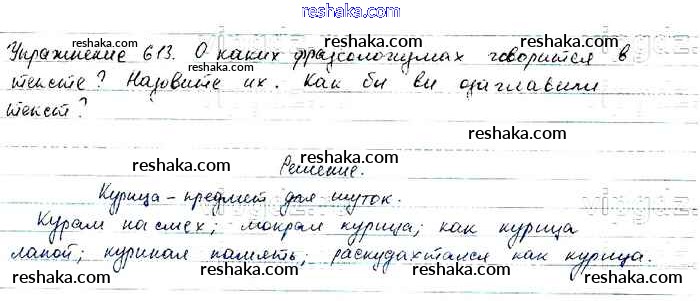 reshaka.com
Упражнение 613. О каких фразеологизмах говорится в
тексте? Назовите их. Как бы вы озаглавили
текст?
Решение.
Курица - предмет для шуток.
Курам на смех; мокрая курица; как курица
лапой; куриная память; раскудахтался как курица.
reshaka.com reshaka.com reshaka.com
reshaka.com reshaka.com reshaka.com
reshaka.com
reshaka.com reshaka.com
reshaka.com reshaka.com reshaka.com
reshaka.com reshaka.com reshaka.com